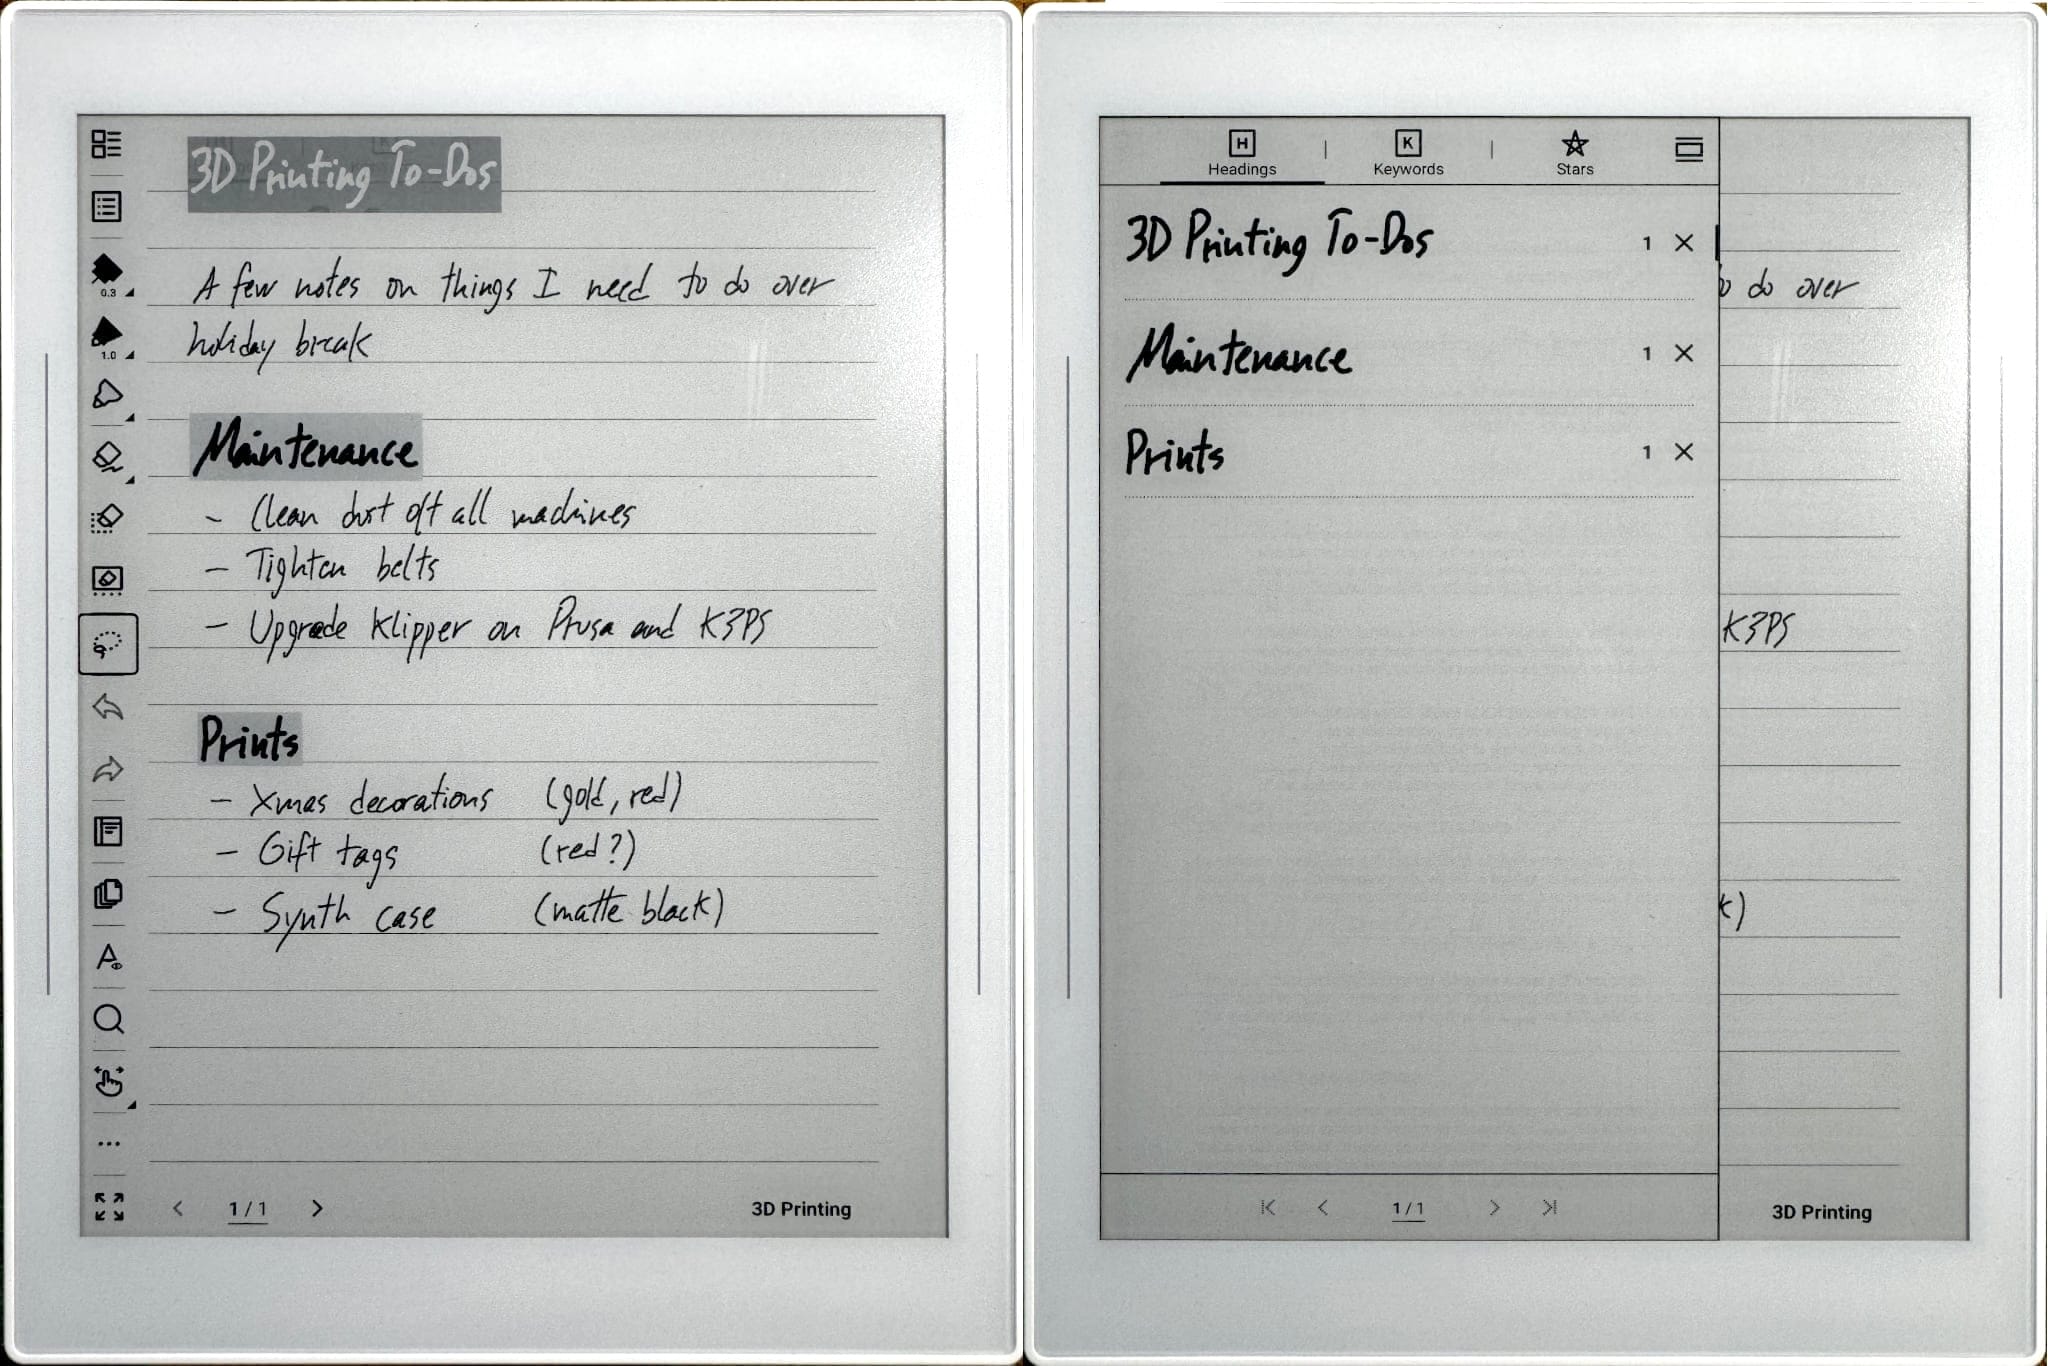 3D Printing To-Dos
A few notes on things I need to do over
holiday break
Maintenance
- Clean dust off all machines
- Tighten belts
- Upgrade Klipper on Prusa and K3PS
Prints
- Xmas decorations (gold, red)
- Gift tags (red?)
- Synth case (matte black)
0.3
1.0
1/1
3D Printing
H
K
Headings
Keywords
Stars
3D Printing To-Dos 1
Maintenance 1
Prints 1
o do over
K3PS
k)
1/1
3D Printing